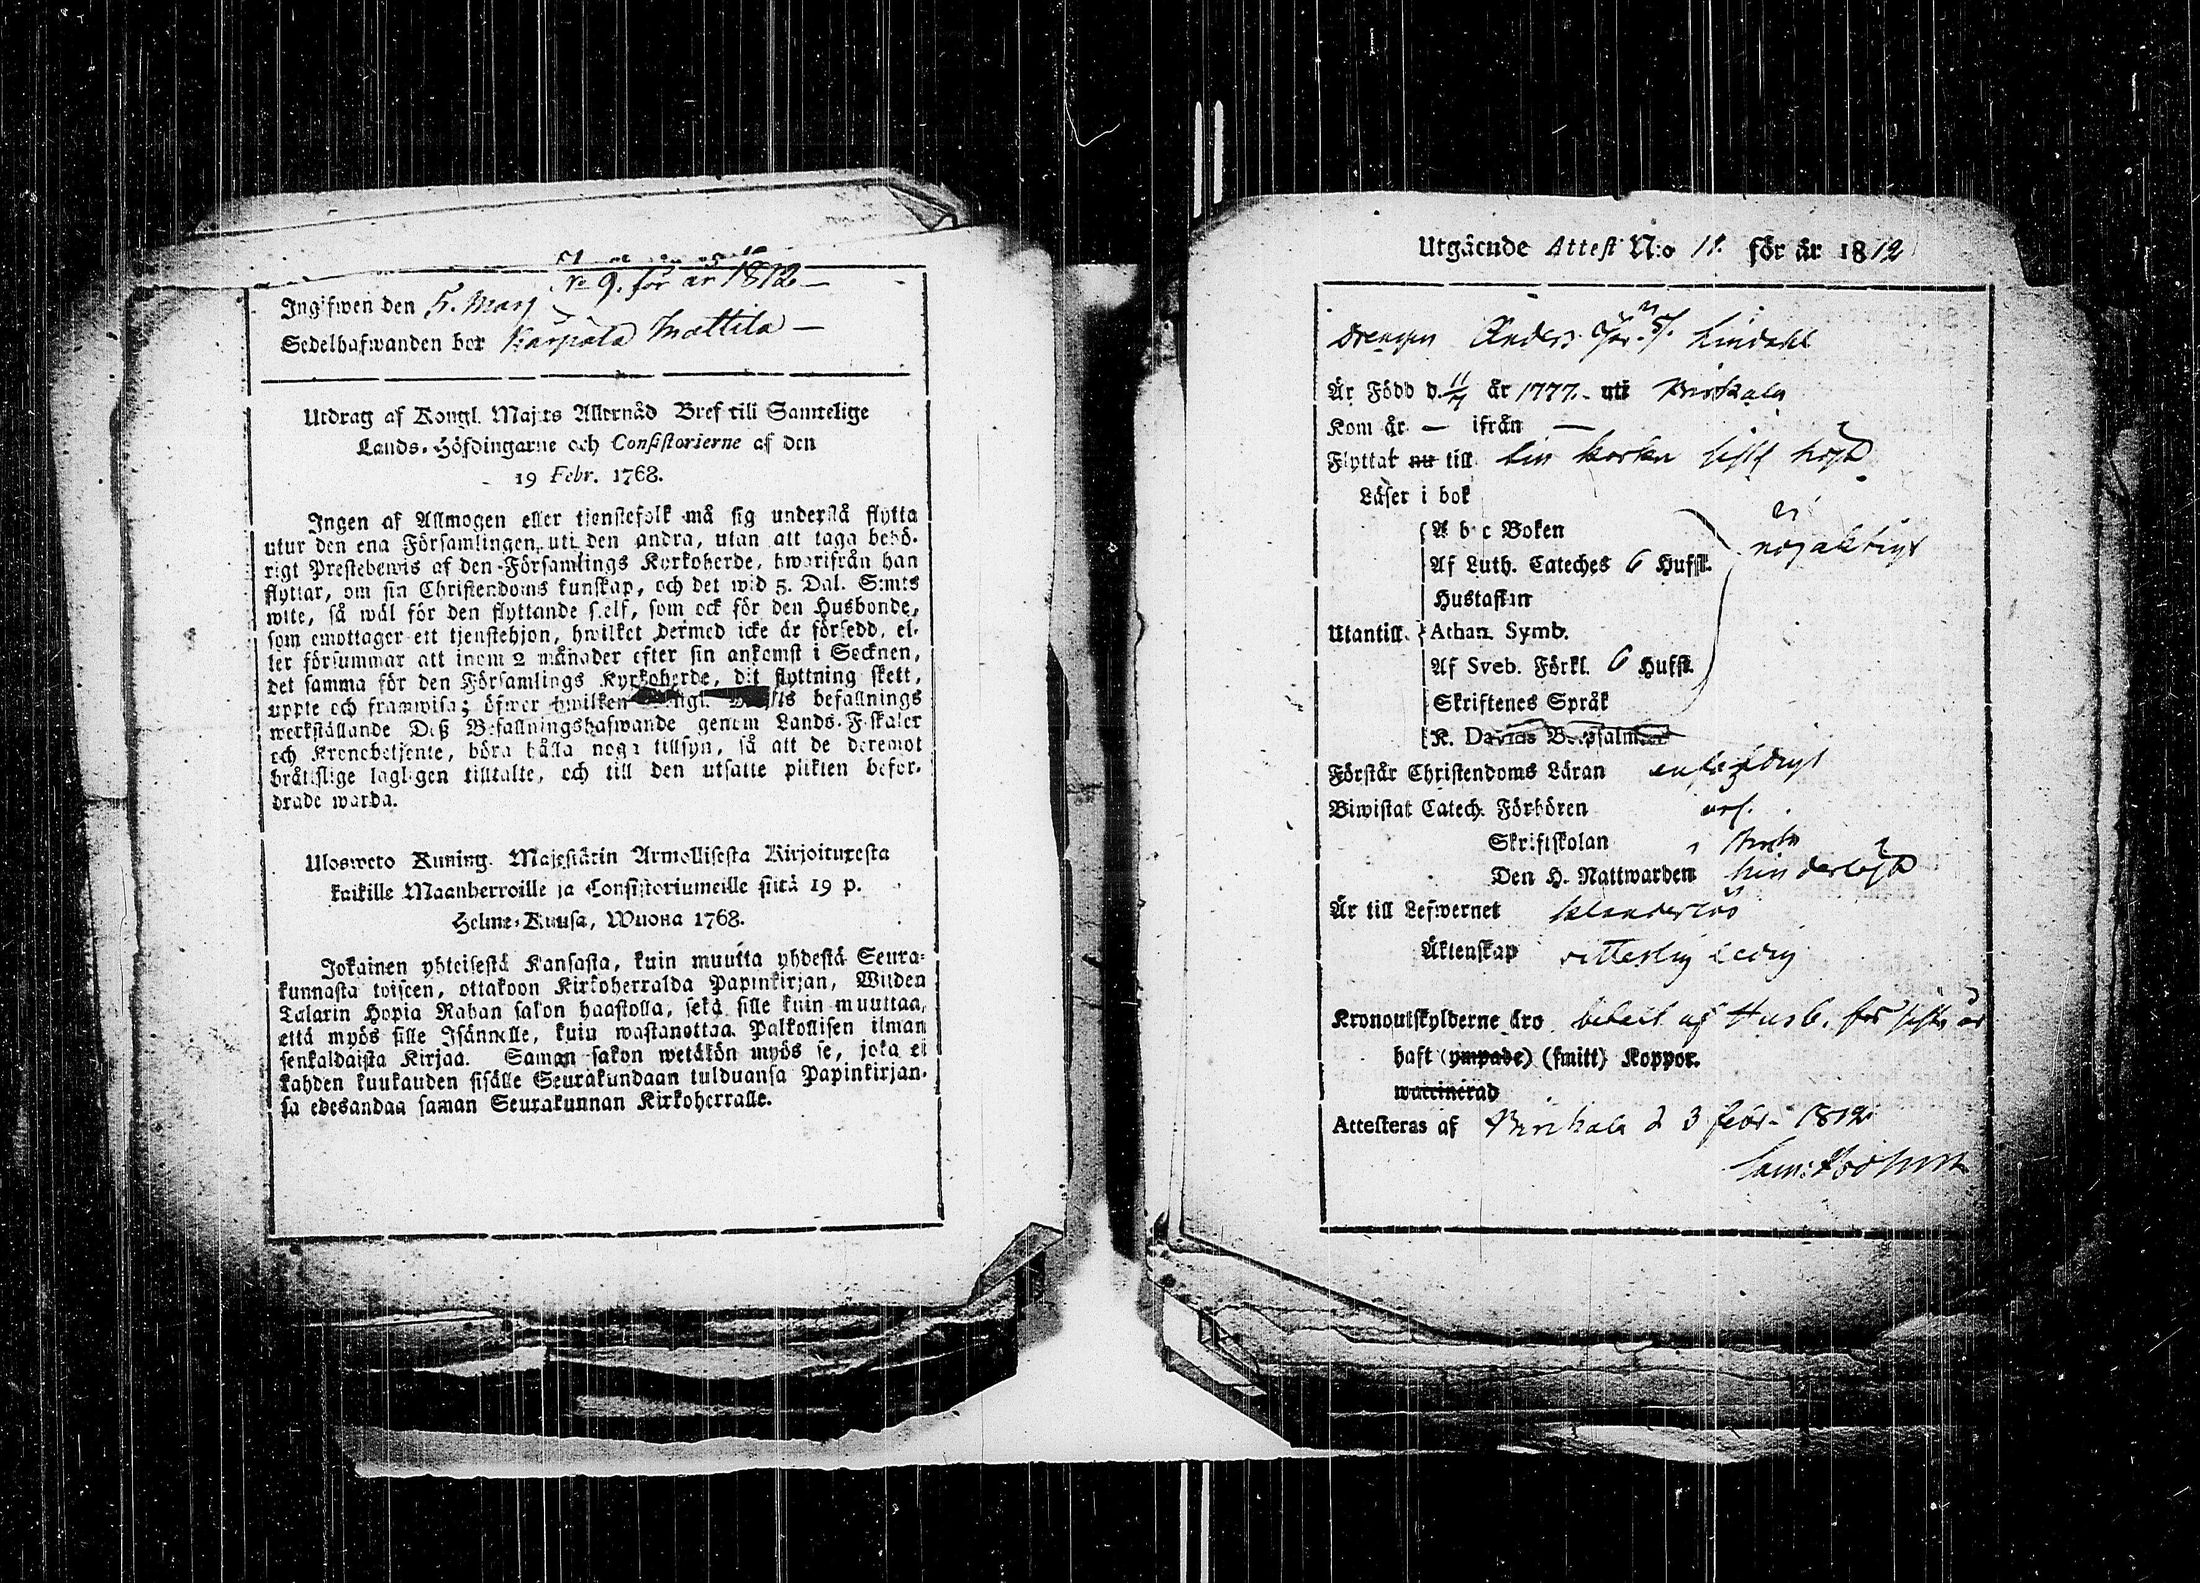 No 9. för år 1812 —
Ingifwen den 5. Marj
Sedelhafwanden bor Karpala Mattila —
Utdrag af Kongl. Maj:ts Allernåd Bref till Samtelige
Lands-Höfdingarne och Consistorierne af den
19 Febr. 1768.
Ingen af Allmogen eller tjenstefolk må sig understå flytta
utur den ena Församlingen uti den andra, utan att taga behö-
rigt Prestebewis af den Församlings Kyrkoherde, hwarifrån han
flyttar, om sin Christendoms kunskap, och det wid 5. Dal. S:mts
wite, så wäl för den flyttande sjelf, som ock för den Husbonde,
som emottager ett tjenstehjon, hwilket dermed icke är försedd, el-
ler försummar att inom 2 månader efter sin ankomst i Socknen,
det samma för den Församlings Kyrkoherde, dit flyttning skett,
uppte och framwisa; öfwer hwilken befallnings
werkställande Deß Befallningshafwande genom Lands-Fiskaler
och Kronobetjente, böra hålla noga tillsyn, så att de deremot
bråttslige lagligen tilltalte, och till den utsatte plikten befor-
drade warda.
Ulosweto Kuning. Majestätin Armollisesta Kirjoituxesta
kaikille Maanherroille ja Consistoriumeille siitä 19 p.
Helme-Kuusa, Wuona 1768.
Jokainen yhteisestä Kansasta, kuin muutta yhdestä Seura-
kunnasta toiseen, ottakoon Kirkoherralda Papinkirjan, Wiiden
Talarin Hopia Rahan sakon haastolla, sekä sille kuin muuttaa,
että myös sille Isännälle, kuin wastanottaa Palkollisen ilman
senkaldaista Kirjaa. Saman sakon wetäkön myös se, joka ei
kahden kuukauden sisälle Seurakundaan tulduansa Papinkirjan-
sa edesandaa saman Seurakunnan Kirkoherralle.
Utgående Attest N:o 11. för år 1812
Drengen Anders Lindahl
Är Född d. 11/4 år 1777. uti Birkala
Kom år — ifrån —
Flyttat nu till
Läser i bok
A b c Boken ej
Af Luth. Cateches 6 Hufst. nojaktigt
Hustaflan
Utantill. Athan. Symb.
Af Sveb. Förkl. 6 Hufst.
Skriftenes Språk
K. Davids Botpsalmer
Förstår Christendoms Läran enfaldigt
Biwistat Catech. Förhören
Skriftskolan
Den H. Nattwarden
Är till Lefwernet klanderlös
Äktenskap ledig
Kronoutskylderne äro betalt af Husb. för sista år
haft (ympade) (smitt) Koppor.
waccinerad
Attesteras af Birkala d 3 febr. 1812